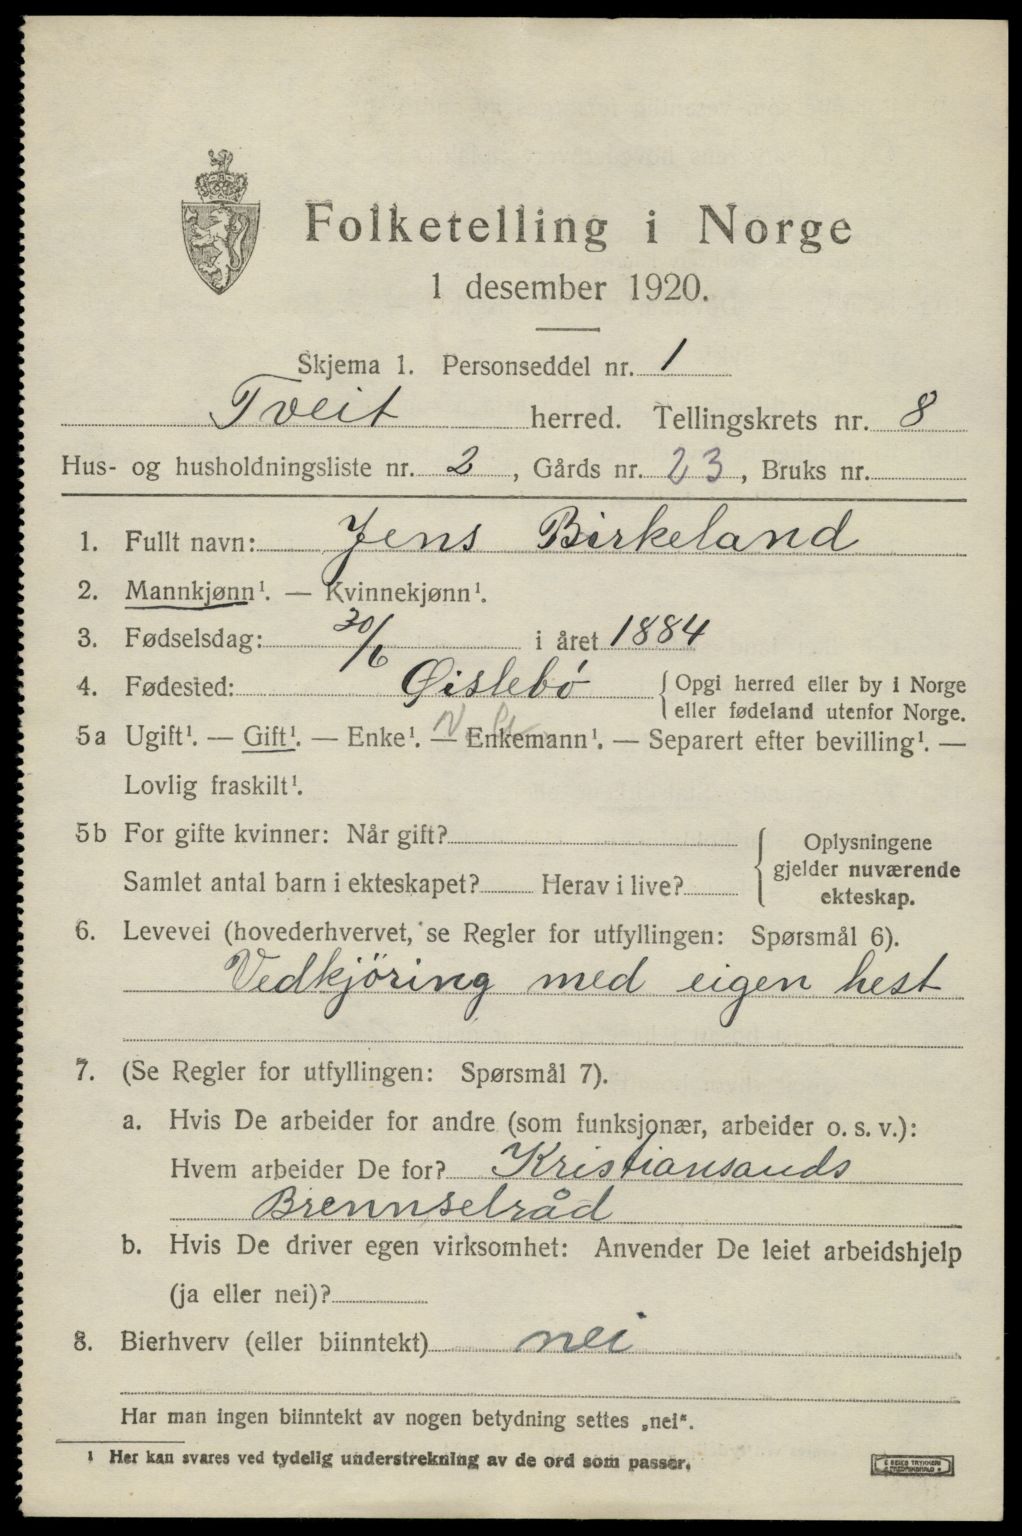 Folketelling i Norge
1 desember 1920.
Skjema 1. Personseddel nr. 1
Tveit herred. Tellingskrets nr. 8
Hus- og husholdningsliste nr. 2, Gårds nr. 23, Bruks nr.
1. Fullt navn: Jens Birkeland
2. Mannkjønn¹. — Kvinnekjønn¹.
3. Fødselsdag: 30/6 i året 1884
4. Fødested: Øislebó { Opgi herred eller by i Norge
eller fødeland utenfor Norge.
5a Ugift¹. — Gift¹. — Enke¹. — Enkemann¹. — Separert efter bevilling¹. —
Lovlig fraskilt¹.
5b For gifte kvinner: Når gift?
Samlet antal barn i ekteskapet? Herav i live?
{ Oplysningene
gjelder nuværende
ekteskap.
6. Levevei (hovederhvervet, se Regler for utfyllingen: Spørsmål 6).
Vedkjöring med eigen hest
7. (Se Regler for utfyllingen: Spørsmål 7).
a. Hvis De arbeider for andre (som funksjonær, arbeider o. s. v.):
Hvem arbeider De for? Kristiansands
Brennselråd
b. Hvis De driver egen virksomhet: Anvender De leiet arbeidshjelp
(ja eller nei)?
8. Bierhverv (eller biinntekt) nei
Har man ingen biinntekt av nogen betydning settes „nei“.
¹ Her kan svares ved tydelig understrekning av de ord som passer.